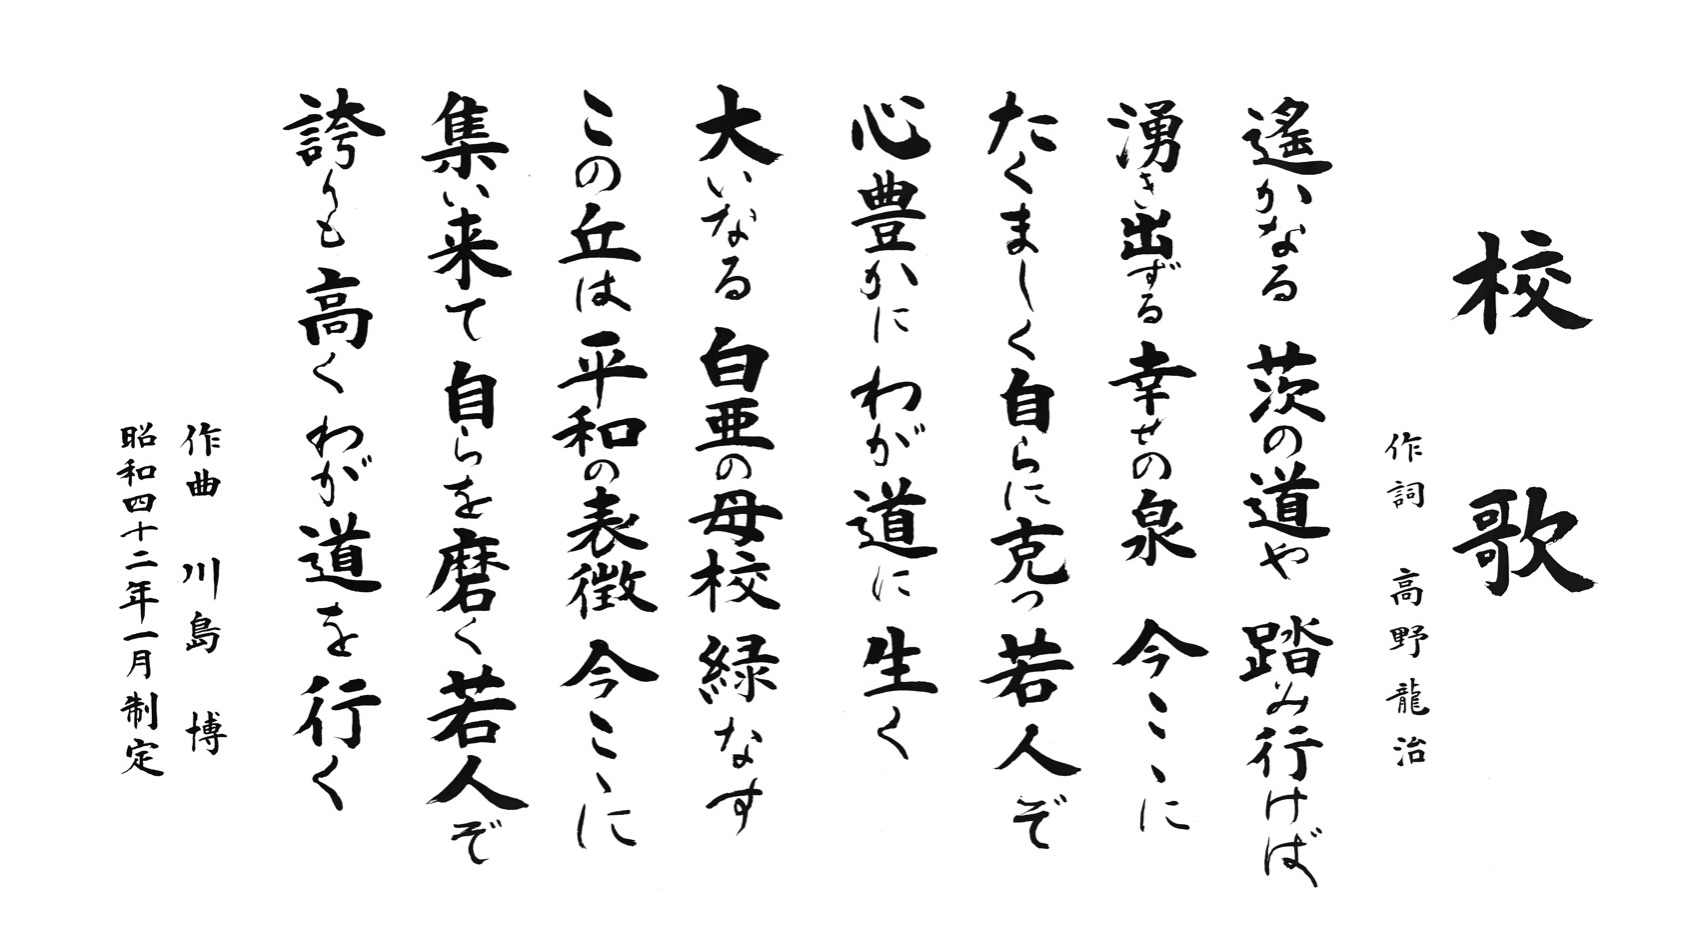 校歌
作詞 高野龍治
遙かなる 茨の道や 踏み行けば
湧き出ずる 幸せの泉 今こゝに
たくましく自らに克つ若人ぞ
心豊かに わが道に 生く
大いなる 白亜の母校 緑なす
この丘は 平和の表徴 今こゝに
集い来て 自らを磨く若人ぞ
誇りも高く わが道を行く
作曲 川島 博
昭和四十二年一月制定